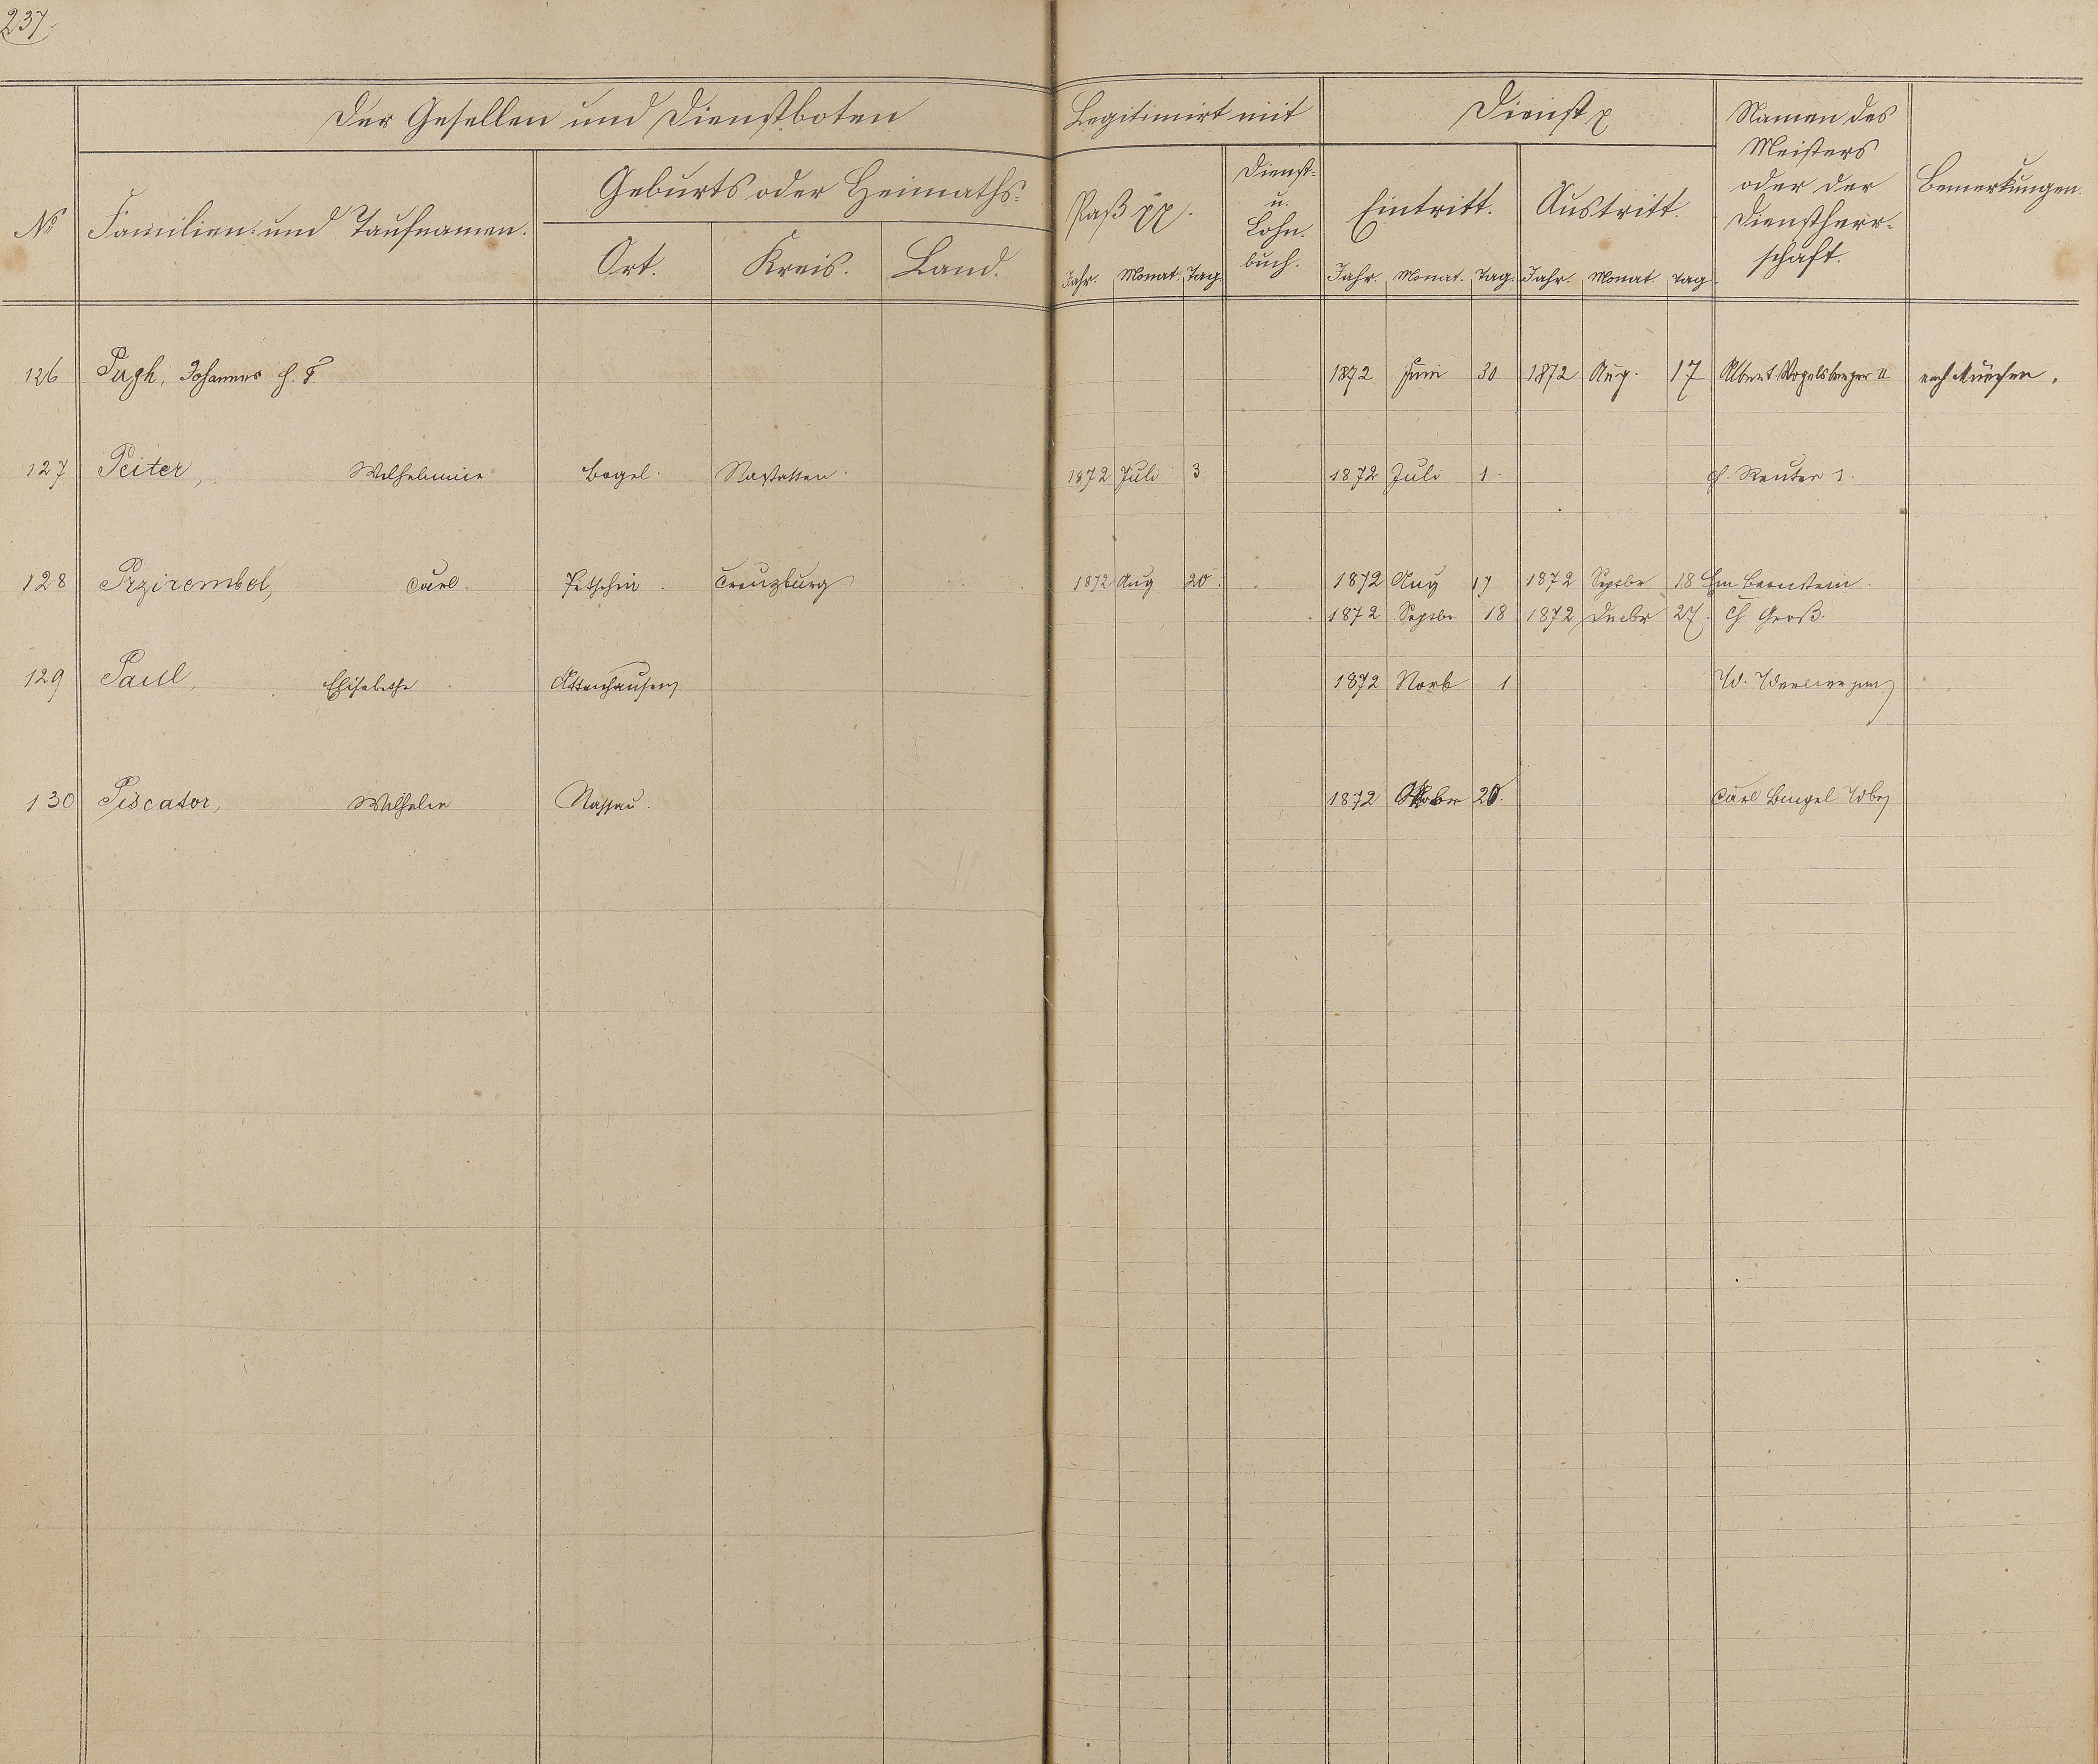 237.
Der Gesellen und Dienstboten
Legitimirt mit
Dienst
Namen des
Meisters
oder der
Dienstherr-
schaft.
Bemerkungen.
No
Familien- und Taufnamen.
Geburts oder Heimaths-
Ort.
Kreis.
Land.
Paß pp.
Dienst-
u.
Lohn-
buch.
Eintritt.
Austritt.
Jahr. Monat. Tag
Jahr. Monat. Tag. Jahr. Monat. Tag
126 Pugh, Johannes 1872 Juni 30 1872 Aug. 17 Albert Vogelsberger II nach
127 Peiter, Wilhelmine Bogel. Nastatten. 1872 Juli 3. 1872 Juli 1. Reuter 1.
128 Przirembel, Carl. Pitschin. Creuzburg 1872 Aug 20. 1872 Aug 17 1872 Septbr 18 Em Bernstein.
1872 Septbr 18 1872 Decbr 27. Ch Groß.
129 Paul, Elisabethe Attenhausen 1872 Novb 1 W. Werner jun.
130 Piscator, Wilhelm Nassau. 1872 20. Carl Bingel Wbr